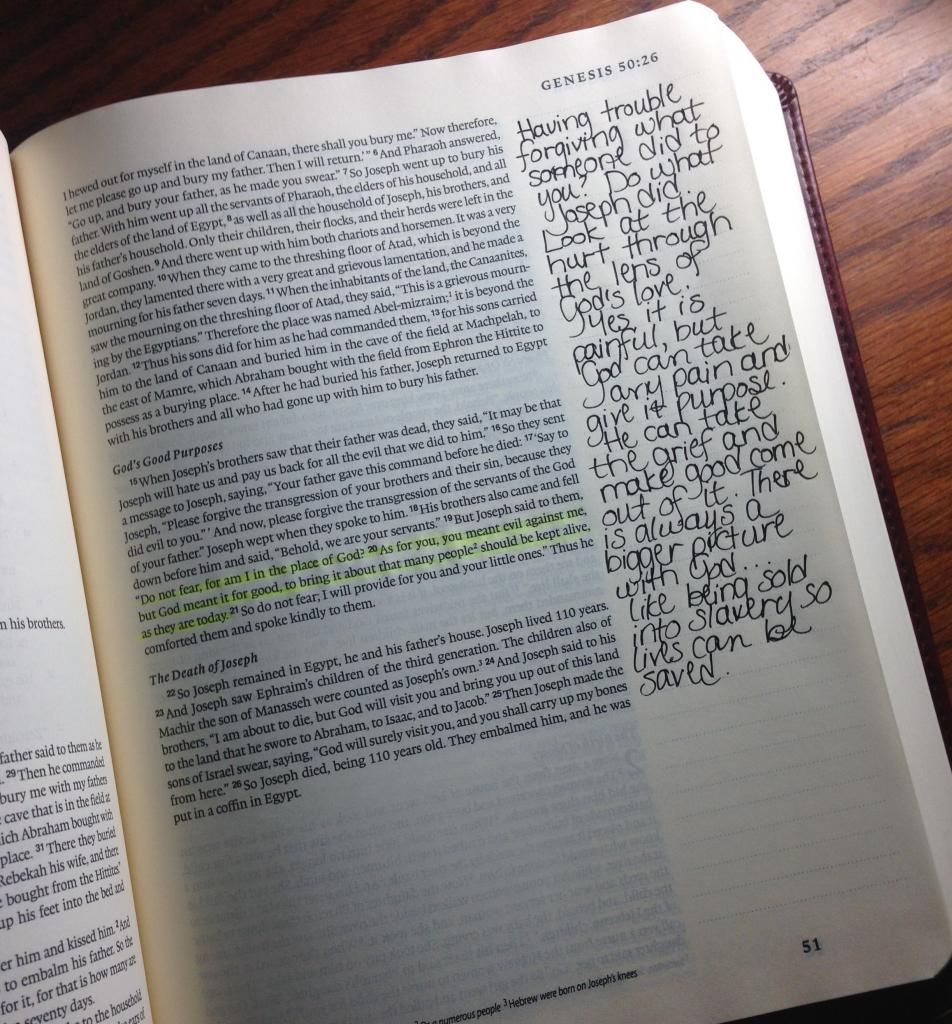 n his brothers.
father said to them as he
29 Then he commanded
bury me with my fathers
cave that is in the field a
ich Abraham bought with
place. 31 There they buried
Rebekah his wife, and there
bought from the Hittites'
up his feet into the bed and
er him and kissed him. 2 And
to embalm his father. So the
for it, for that is how many are
seventy days.
to the household
GENESIS 50:26
I hewed out for myself in the land of Canaan, there shall you bury me.” Now therefore,
let me please go up and bury my father. Then I will return.’” 6 And Pharaoh answered,
“Go up, and bury your father, as he made you swear.” 7 So Joseph went up to bury his
father. With him went up all the servants of Pharaoh, the elders of his household, and all
the elders of the land of Egypt, 8 as well as all the household of Joseph, his brothers, and
his father's household. Only their children, their flocks, and their herds were left in the
land of Goshen. 9 And there went up with him both chariots and horsemen. It was a very
great company. 10 When they came to the threshing floor of Atad, which is beyond the
Jordan, they lamented there with a very great and grievous lamentation, and he made a
mourning for his father seven days. 11 When the inhabitants of the land, the Canaanites,
saw the mourning on the threshing floor of Atad, they said, “This is a grievous mourn-
ing by the Egyptians.” Therefore the place was named Abel-mizraim;1 it is beyond the
Jordan. 12 Thus his sons did for him as he had commanded them, 13 for his sons carried
him to the land of Canaan and buried him in the cave of the field at Machpelah, to
the east of Mamre, which Abraham bought with the field from Ephron the Hittite to
possess as a burying place. 14 After he had buried his father, Joseph returned to Egypt
with his brothers and all who had gone up with him to bury his father.
God's Good Purposes
15 When Joseph's brothers saw that their father was dead, they said, “It may be that
Joseph will hate us and pay us back for all the evil that we did to him.” 16 So they sent
a message to Joseph, saying, “Your father gave this command before he died: 17 ‘Say to
Joseph, “Please forgive the transgression of your brothers and their sin, because they
did evil to you.”’ And now, please forgive the transgression of the servants of the God
of your father.” Joseph wept when they spoke to him. 18 His brothers also came and fell
down before him and said, “Behold, we are your servants.” 19 But Joseph said to them,
“Do not fear, for am I in the place of God? 20 As for you, you meant evil against me,
but God meant it for good, to bring it about that many people2 should be kept alive,
as they are today. 21 So do not fear; I will provide for you and your little ones.” Thus he
comforted them and spoke kindly to them.
The Death of Joseph
22 So Joseph remained in Egypt, he and his father's house. Joseph lived 110 years.
23 And Joseph saw Ephraim's children of the third generation. The children also of
Machir the son of Manasseh were counted as Joseph's own.3 24 And Joseph said to his
brothers, “I am about to die, but God will visit you and bring you up out of this land
to the land that he swore to Abraham, to Isaac, and to Jacob.” 25 Then Joseph made the
sons of Israel swear, saying, “God will surely visit you, and you shall carry up my bones
from here.” 26 So Joseph died, being 110 years old. They embalmed him, and he was
put in a coffin in Egypt.
Having trouble
forgiving what
someone did to
you? Do what
Joseph did.
Look at the
hurt through
the lens of
God's love.
Yes, it is
painful, but
God can take
any pain and
give it purpose.
He can take
the grief and
make good come
out of it. There
is always a
bigger picture
with God...
like being sold
into slavery so
lives can be
saved.
51
numerous people 3 Hebrew were born on Joseph's knees